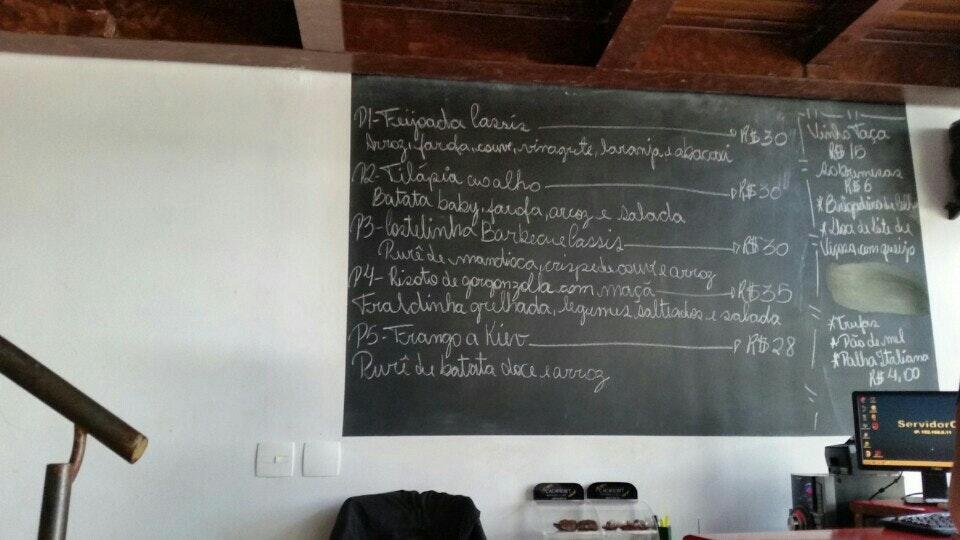 P1-Feijoada Cassis R$30
Arroz, farofa, couve, vinagrete, laranja e abacaxi
P2-Tilápia ao alho R$30
Batata baby, farofa, arroz e salada
P3-Costelinha Barbecue Cassis R$30
Purê de mandioca, crispe de couve e arroz
P4-Risoto de gorgonzola com maçã R$35
Fraldinha grelhada, legumes salteados e salada
P5-Frango a Kiev R$28
Purê de batata doce e arroz
Vinho Taça
R$15
Sobremesas
R$6
*Brigadeiro de
*Doce de leite de
Viçosa com queijo
*Trufas
*Pão de mel
*Palha Italiana
R$4,00
Servidor